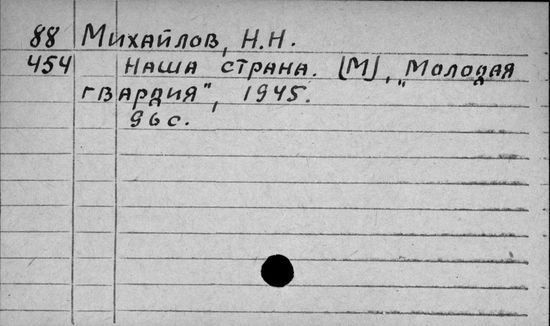 88 Михайлов, Н.Н.
454 Наша страна. [М], „Молодая
гвардия", 1945.
96 с.